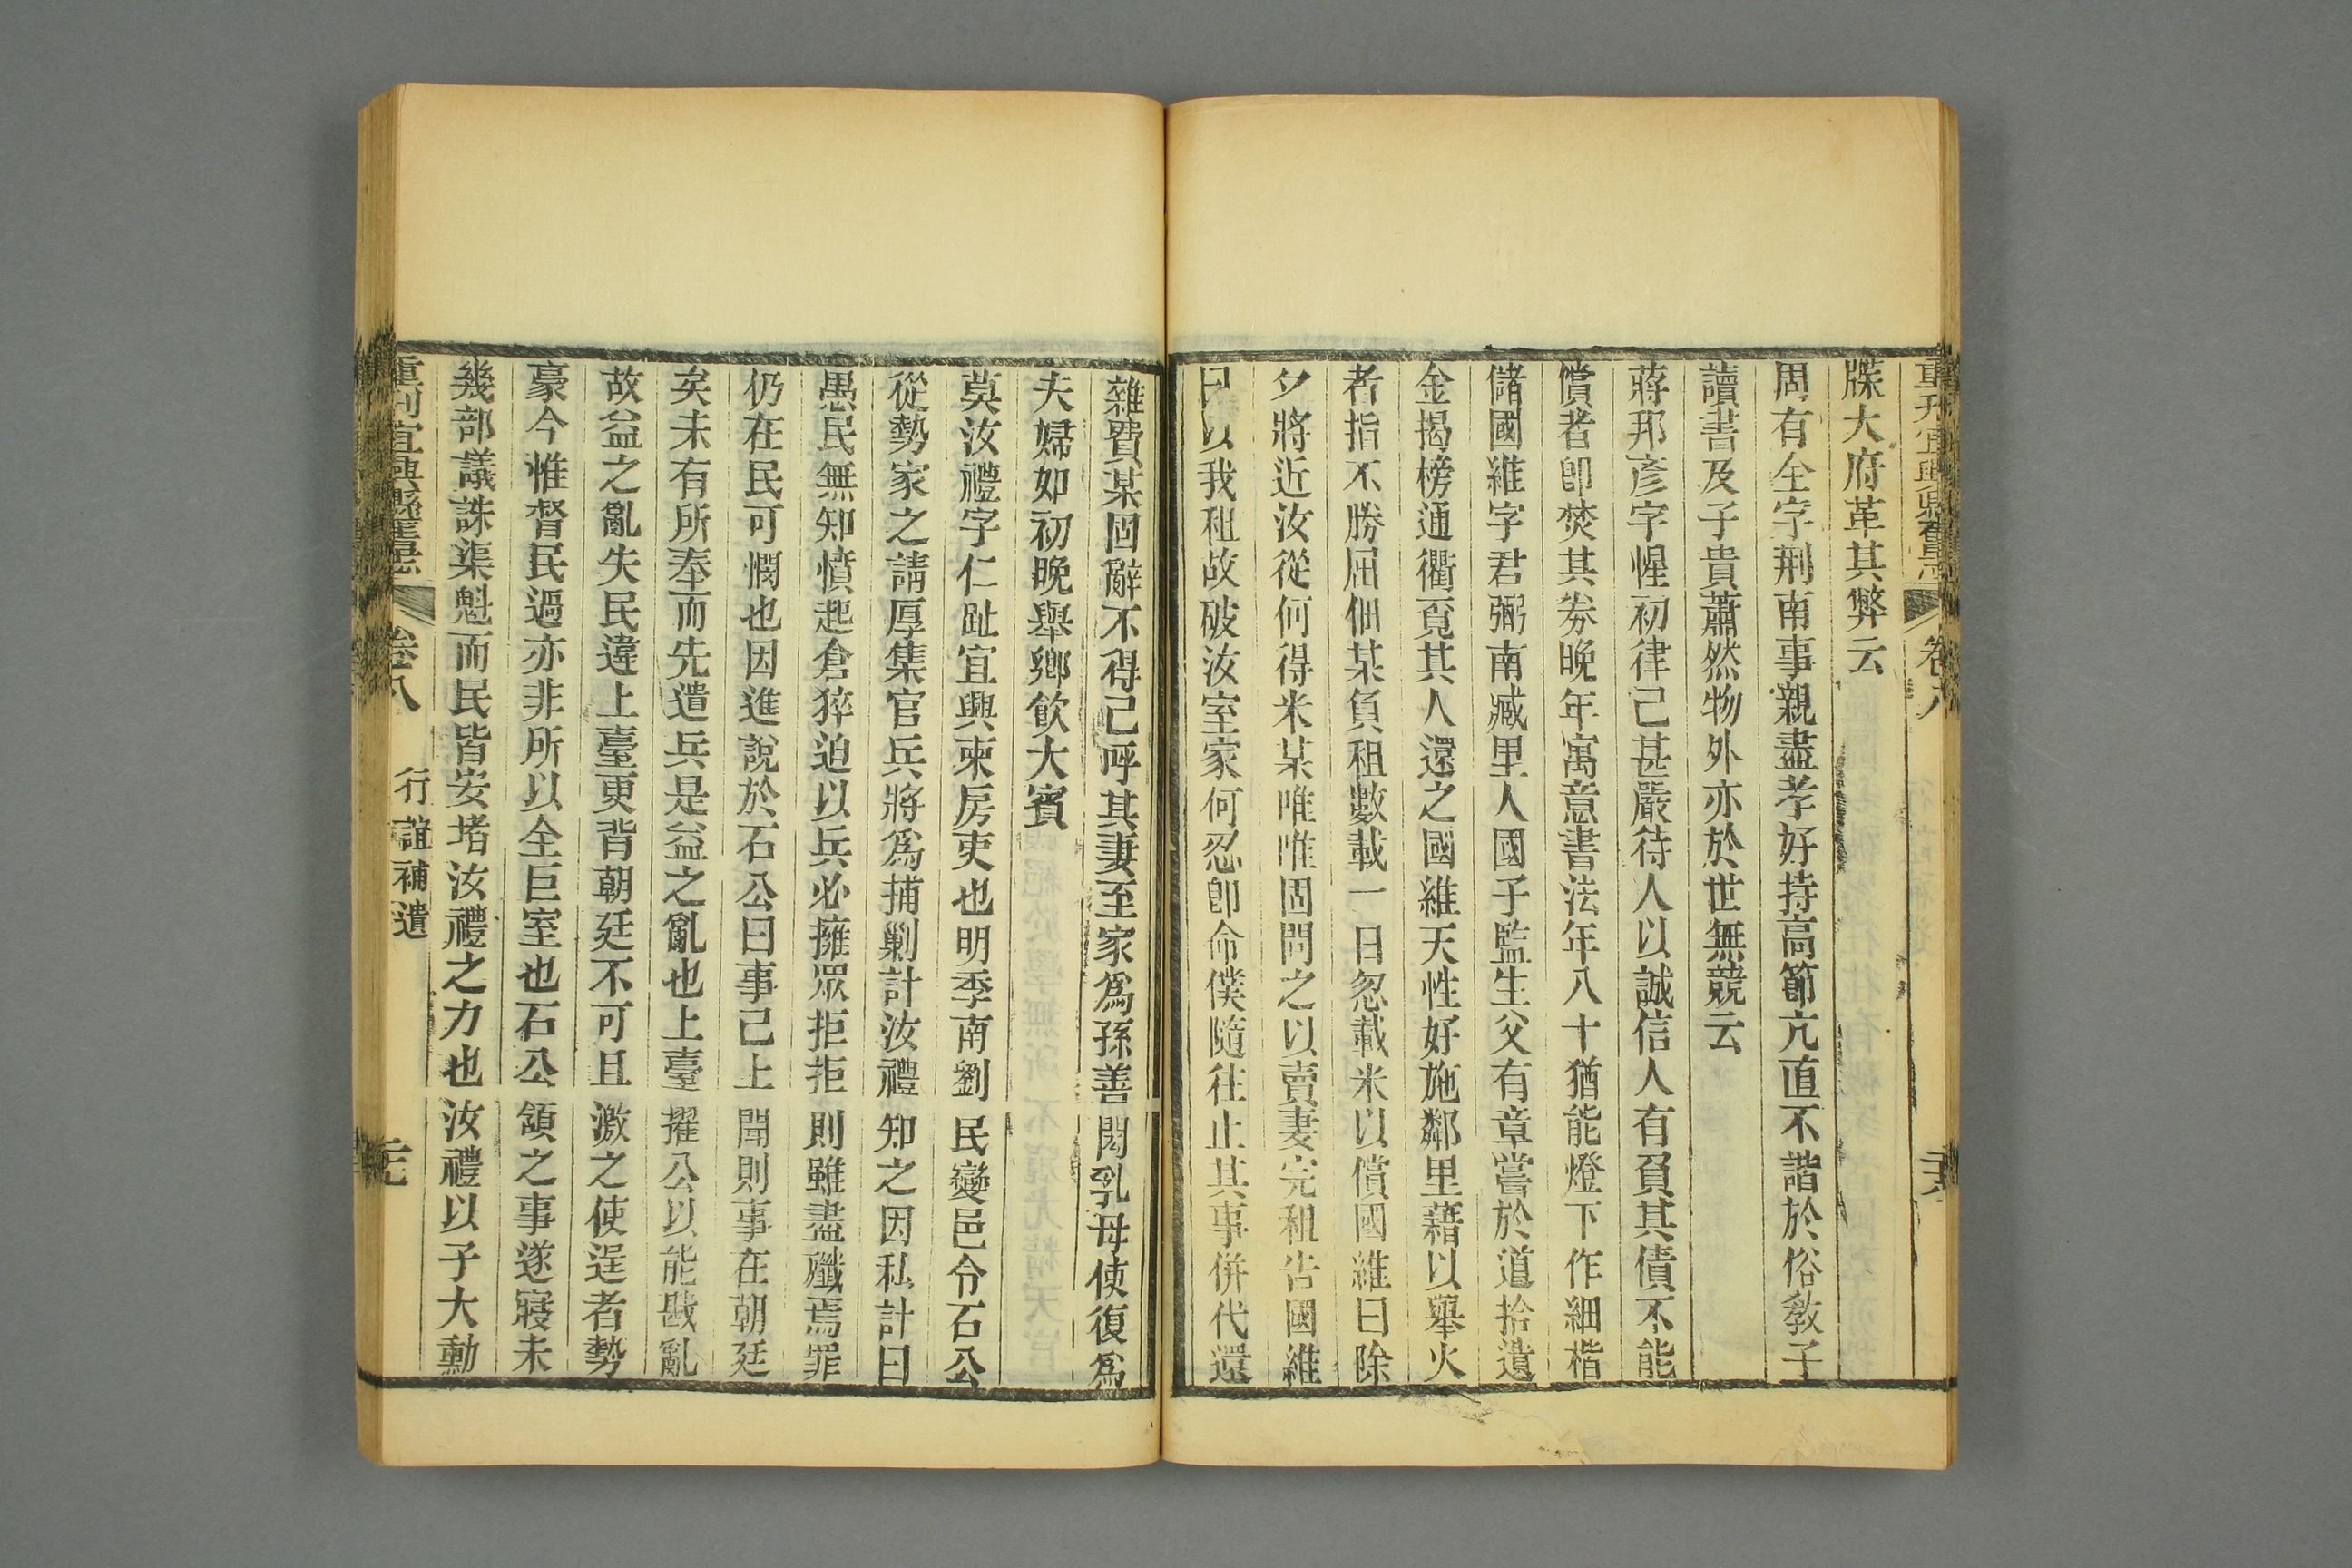 重刊宜興縣舊志 卷八
牒大府革其弊云
周有全字荆南事親盡孝好持高節亢直不諧於俗教子
讀書及子貴蕭然物外亦於世無競云
蔣邦彥字惺初律己甚嚴待人以誠信人有負其債不能
償者卽焚其券晚年寓意書法年八十猶能燈下作細楷
儲國維字君弼南臧里人國子監生父有章嘗於道拾遺
金揭榜通衢覓其人還之國維天性好施鄰里藉以舉火
者指不勝屈佃某負租數載一日忽載米以償國維曰除
夕將近汝從何得米某唯唯固問之以賣妻完租告國維
曰以我租故破汝室家何忍卽命僕隨往止其事併代還
雜費某固辭不得已呼其妻至家爲孫善閎乳母使復爲
夫婦如初晚舉鄉飲大賓
莫汝禮字仁趾宜興東房吏也明季南劉民變邑令石公
從勢家之請厚集官兵將爲捕剿計汝禮知之因私計曰
愚民無知憤起倉猝迫以兵必擁眾拒拒則雖盡殲焉罪
仍在民可憫也因進說於石公曰事已上聞則事在朝廷
矣未有所奉而先遣兵是益之亂也上臺擢公以能戡亂
故益之亂失民違上臺更背朝廷不可且激之使逞者勢
豪今惟督民過亦非所以全巨室也石公頷之事遂寢未
幾部議誅渠魁而民皆安堵汝禮之力也汝禮以子大勳
重刊宜興縣舊志 卷八 行誼補遺